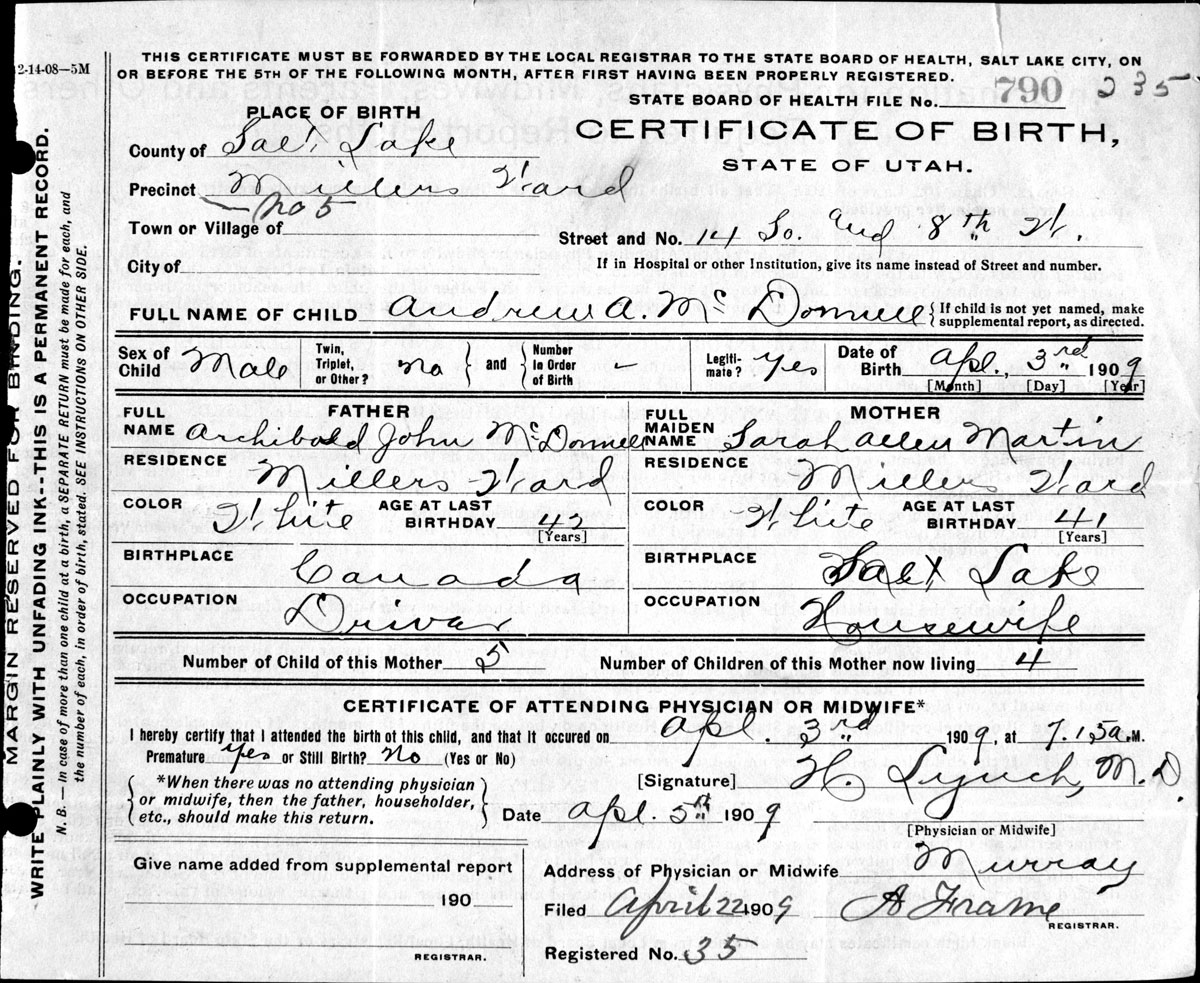 12-14-08—5M
THIS CERTIFICATE MUST BE FORWARDED BY THE LOCAL REGISTRAR TO THE STATE BOARD OF HEALTH, SALT LAKE CITY, ON
OR BEFORE THE 5TH OF THE FOLLOWING MONTH, AFTER FIRST HAVING BEEN PROPERLY REGISTERED.
MARGIN RESERVED FOR BINDING.
WRITE PLAINLY WITH UNFADING INK--THIS IS A PERMANENT RECORD.
N. B. — In case of more than one child at a birth, a SEPARATE RETURN must be made for each, and
the number of each, in order of birth, stated. SEE INSTRUCTIONS ON OTHER SIDE.
STATE BOARD OF HEALTH FILE No. 790 235
PLACE OF BIRTH
CERTIFICATE OF BIRTH,
STATE OF UTAH.
County of Salt Lake
Precinct Millers Ward
No 5
Town or Village of
Street and No. 14 So. and 8th W.
City of
If in Hospital or other Institution, give its name instead of Street and number.
FULL NAME OF CHILD Andrew A. McDonnell { If child is not yet named, make
supplemental report, as directed.
Sex of Child Male Twin, Triplet, or Other? no } and { Number In Order of Birth - Legiti- mate? Yes Date of Birth Apl. 3rd 1909
[Month] [Day] [Year]
FATHER
MOTHER
FULL NAME Archibald John McDonnell FULL MAIDEN NAME Sarah Allen Martin
RESIDENCE Millers Ward RESIDENCE Millers Ward
COLOR White AGE AT LAST BIRTHDAY 42 [Years] COLOR White AGE AT LAST BIRTHDAY 41 [Years]
BIRTHPLACE Canada BIRTHPLACE Salt Lake
OCCUPATION Driver OCCUPATION Housewife
Number of Child of this Mother 5 Number of Children of this Mother now living 4
CERTIFICATE OF ATTENDING PHYSICIAN OR MIDWIFE*
I hereby certify that I attended the birth of this child, and that it occured on Apl. 3rd 1909, at 7.15 a.M.
Premature Yes or Still Birth? No (Yes or No)
{ *When there was no attending physician
or midwife, then the father, householder,
etc., should make this return. }
[Signature] H. Lynch, M.D.
Date Apl. 5th 1909
[Physician or Midwife]
Give name added from supplemental report
190
REGISTRAR.
Address of Physician or Midwife Murray
Filed April 22 1909 A Frame
REGISTRAR.
Registered No. 35